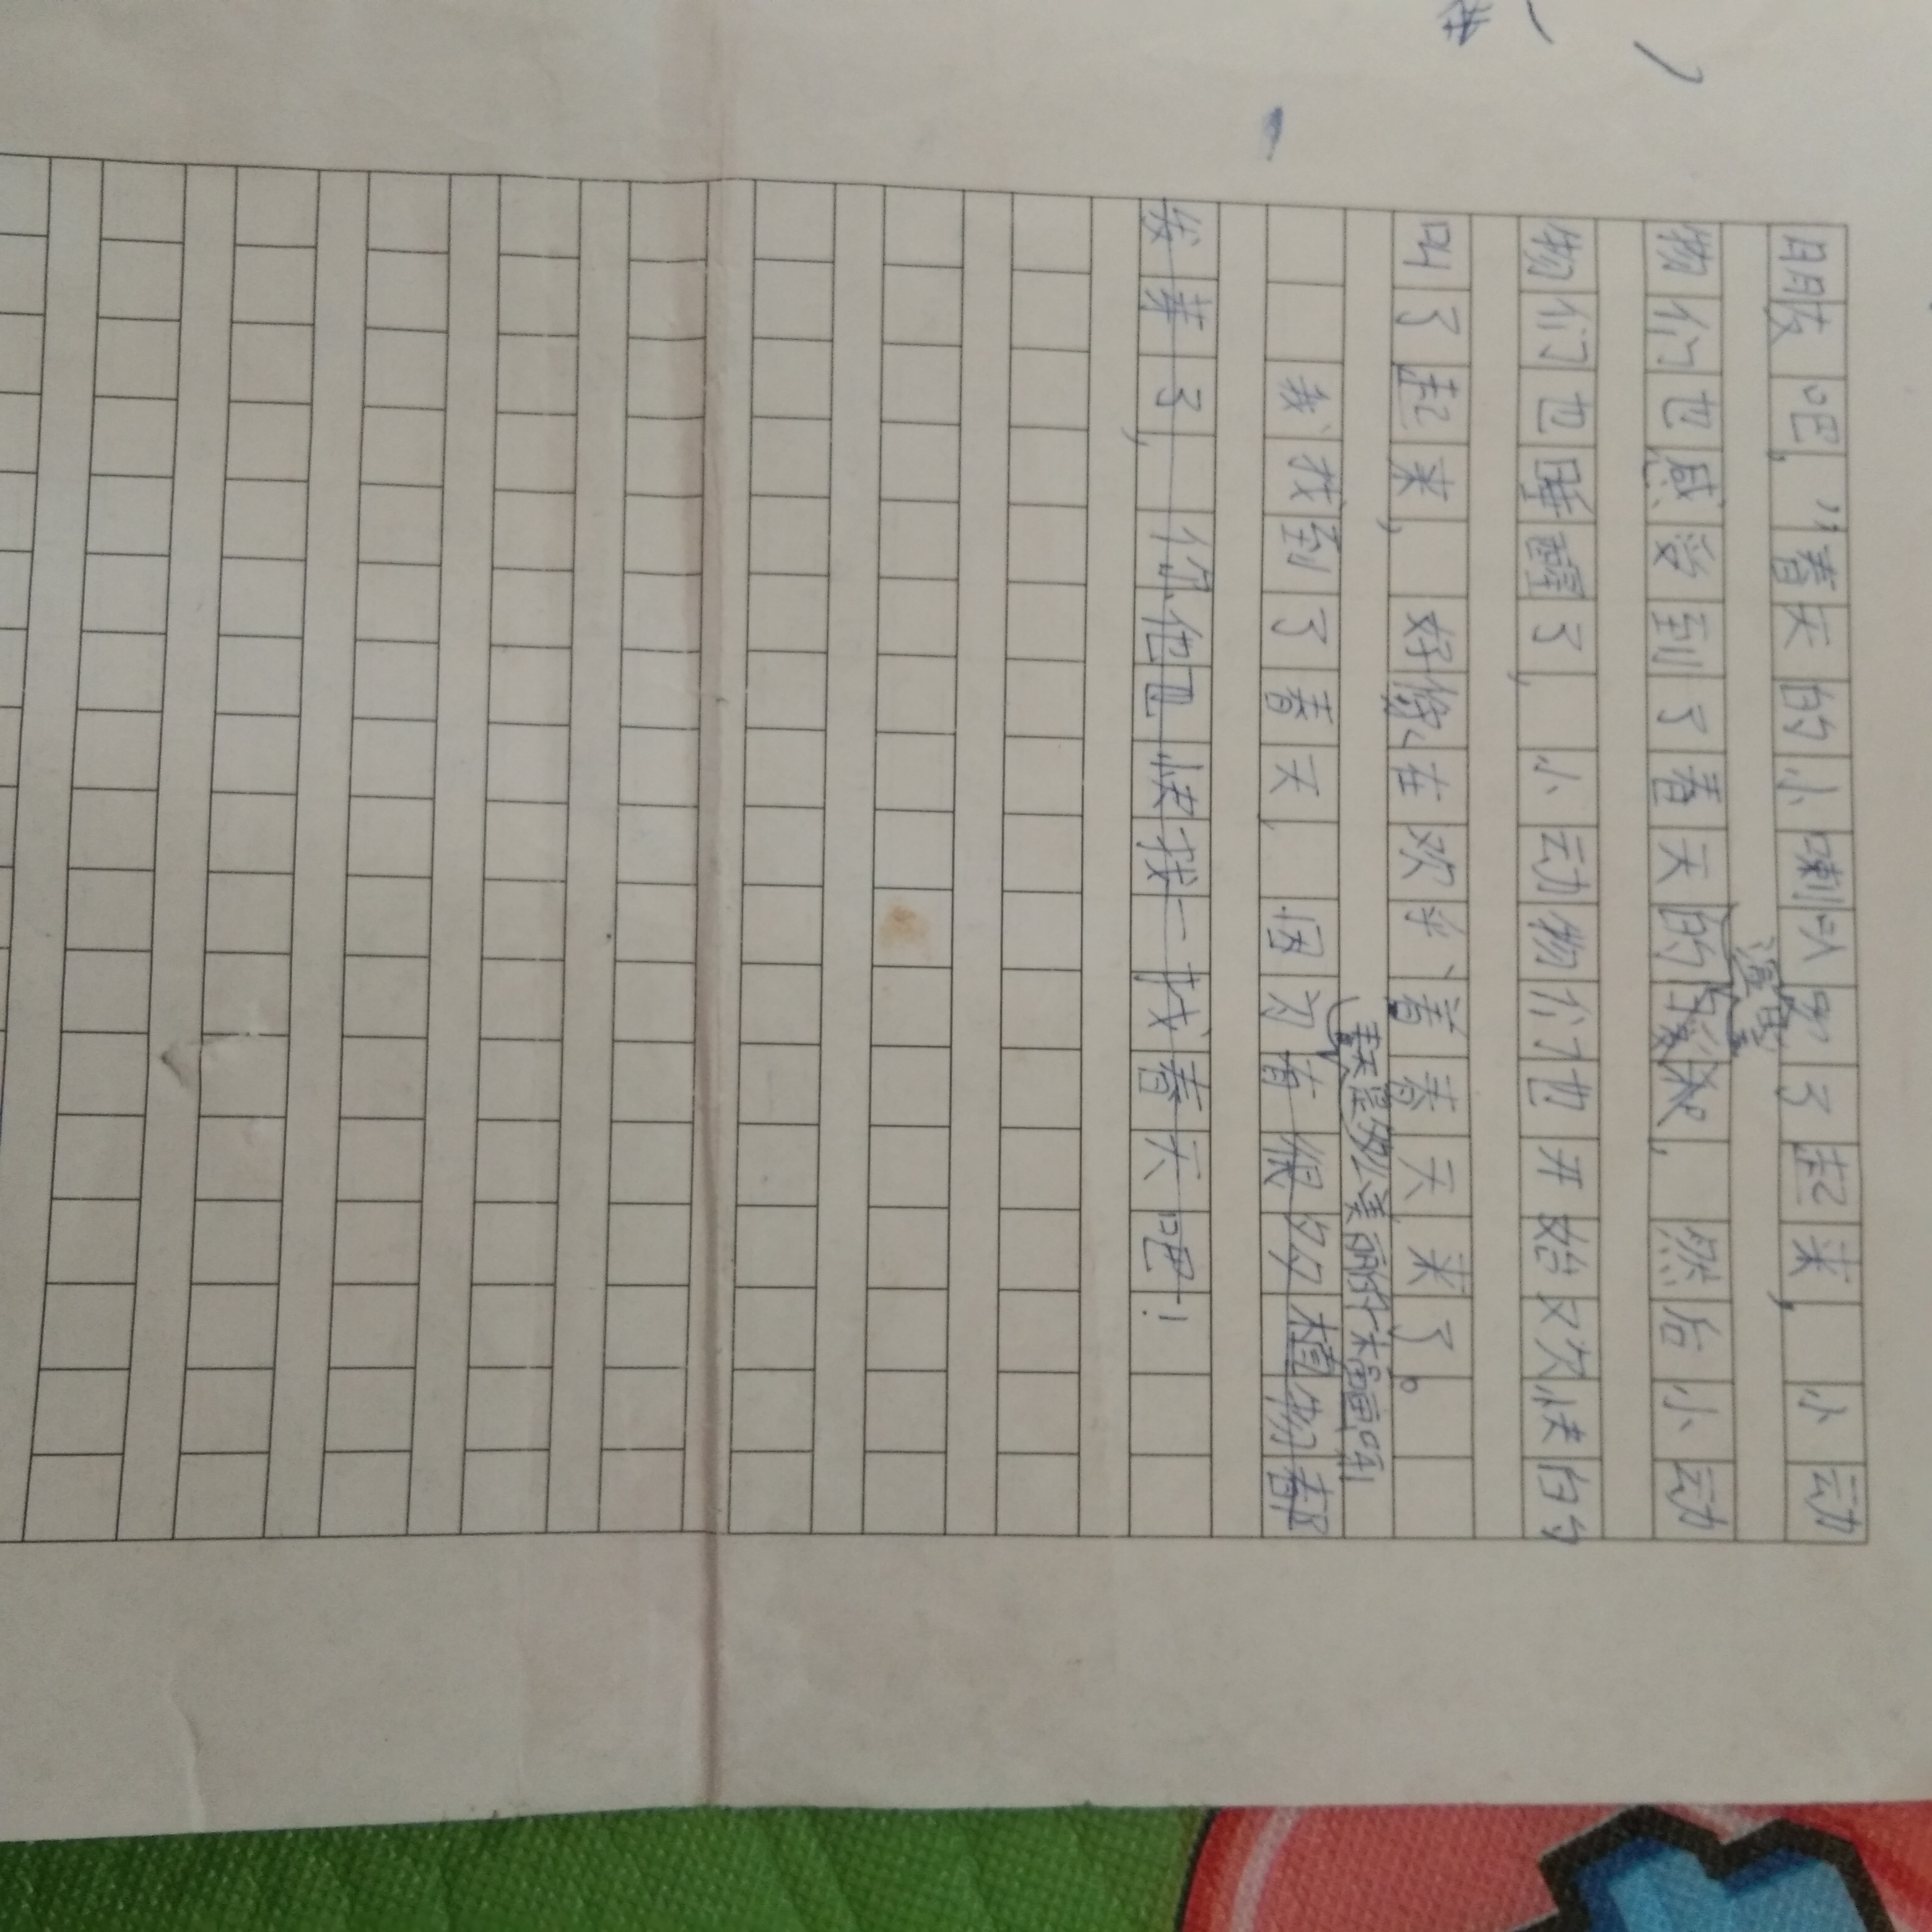 眼吧,"春天的小喇叭叫了起来,小动
温 
物们也感受到了春天的,然后小动
物们也睡醒了,小动物们也开始欢快的
叫了起来,好像在欢乎着春天来了。
春天是多么美丽的
我找到了春天,因为有很多植物都
发芽了,你他也快找一找春天吧!